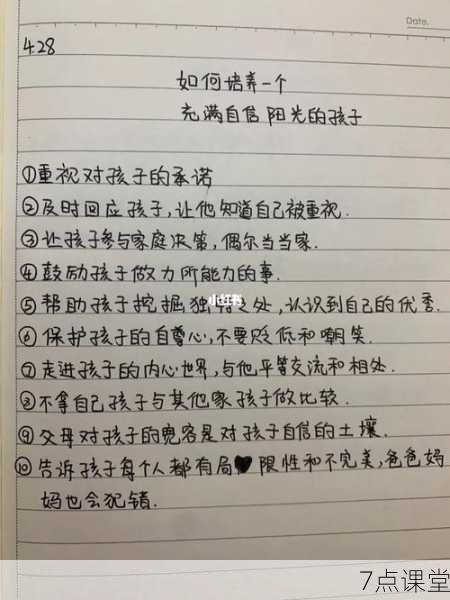 Date.
4.28
如何培养一个
充满自信阳光的孩子
①重视对孩子的承诺
②及时回应孩子,让他知道自己被重视.
③让孩子参与家庭决策,偶尔当当家.
④鼓励孩子做力所能力的事.
⑤帮助孩子挖掘独特之处,认识到自己的优秀.
小红书
⑥保护孩子的自尊心,不要贬低和嘲笑.
⑦走进孩子的内心世界,与他平等交流和相处.
⑧不拿自己孩子与其他家孩子做比较.
⑨父母对孩子的宽容是对孩子自信的土壤.
⑩告诉孩子每个人都有局限性和不完美,爸爸妈
妈也会犯错.
7点课堂